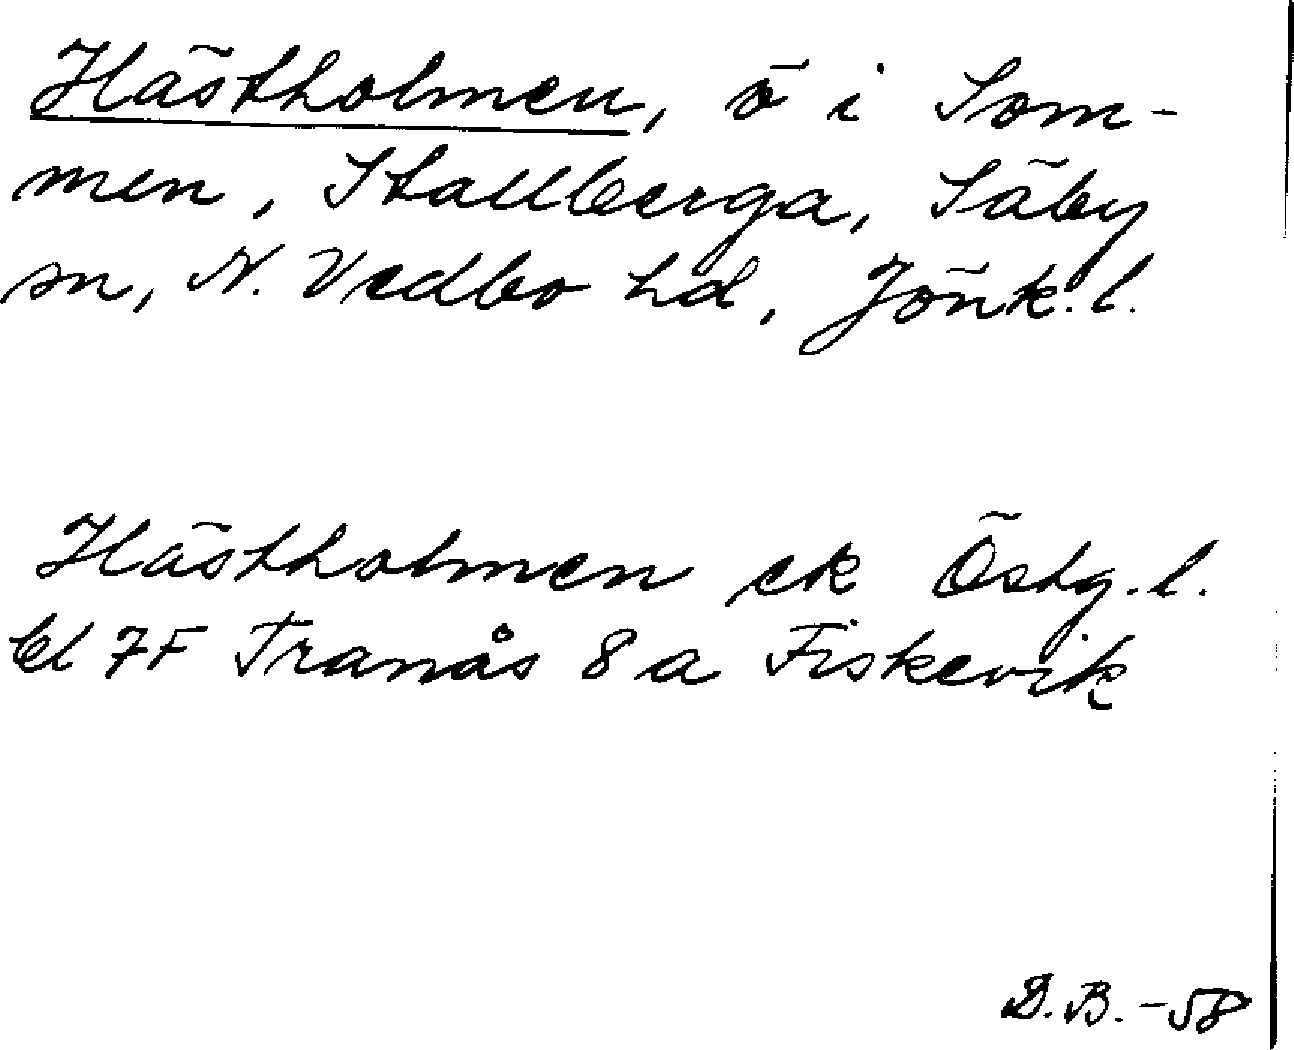 Hästholmen, ö i Som-
men, Stallberga, Säby
sn, N. Vedbo hd, Jönk. l.
Hästholmen ek Östg. l.
bl 7F Tranås 8 a Fiskevik
D. B. -58